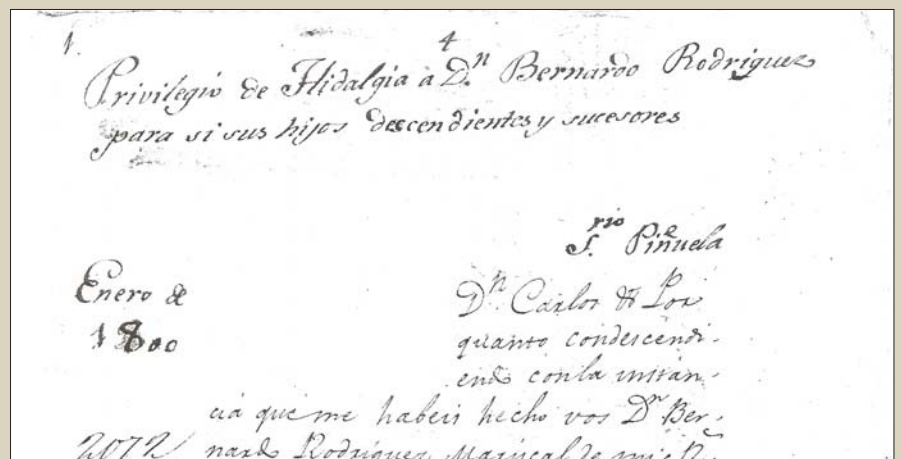 1.
4
Privilegio de Hidalgia à D.n Bernardo Rodriguez
para si sus hijos descendientes y sucesores
S.rio Piñuela
Enero de
1800
D.n Carlos &a Por
quanto condescendi-
endo con la instan-
cia que me habeis hecho vos D.n Ber-
2072
nardo Rodriguez Mariscal de mi R.l